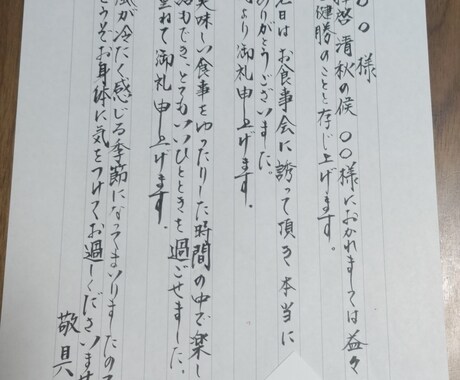 〇〇様
拝啓 清秋の候 〇〇様におかれましては益々
健勝のことと存じ上げます。
先日は お食事会に誘って頂き 本当に
ありがとうございました。
より御礼申し上げます。
美味しい食事をゆったりした時間の中で楽し
話もでき、とてもいいひとときを過ごせました。
重ねて御礼申し上げます。
風が冷たく感じる季節になってまいりましたの
どうぞお身体に気をつけてお過しくださいませ
敬具